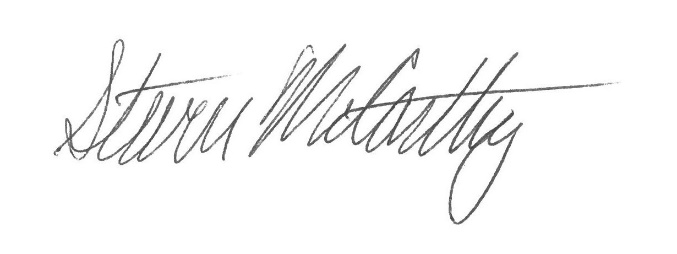 Steven McCarthy